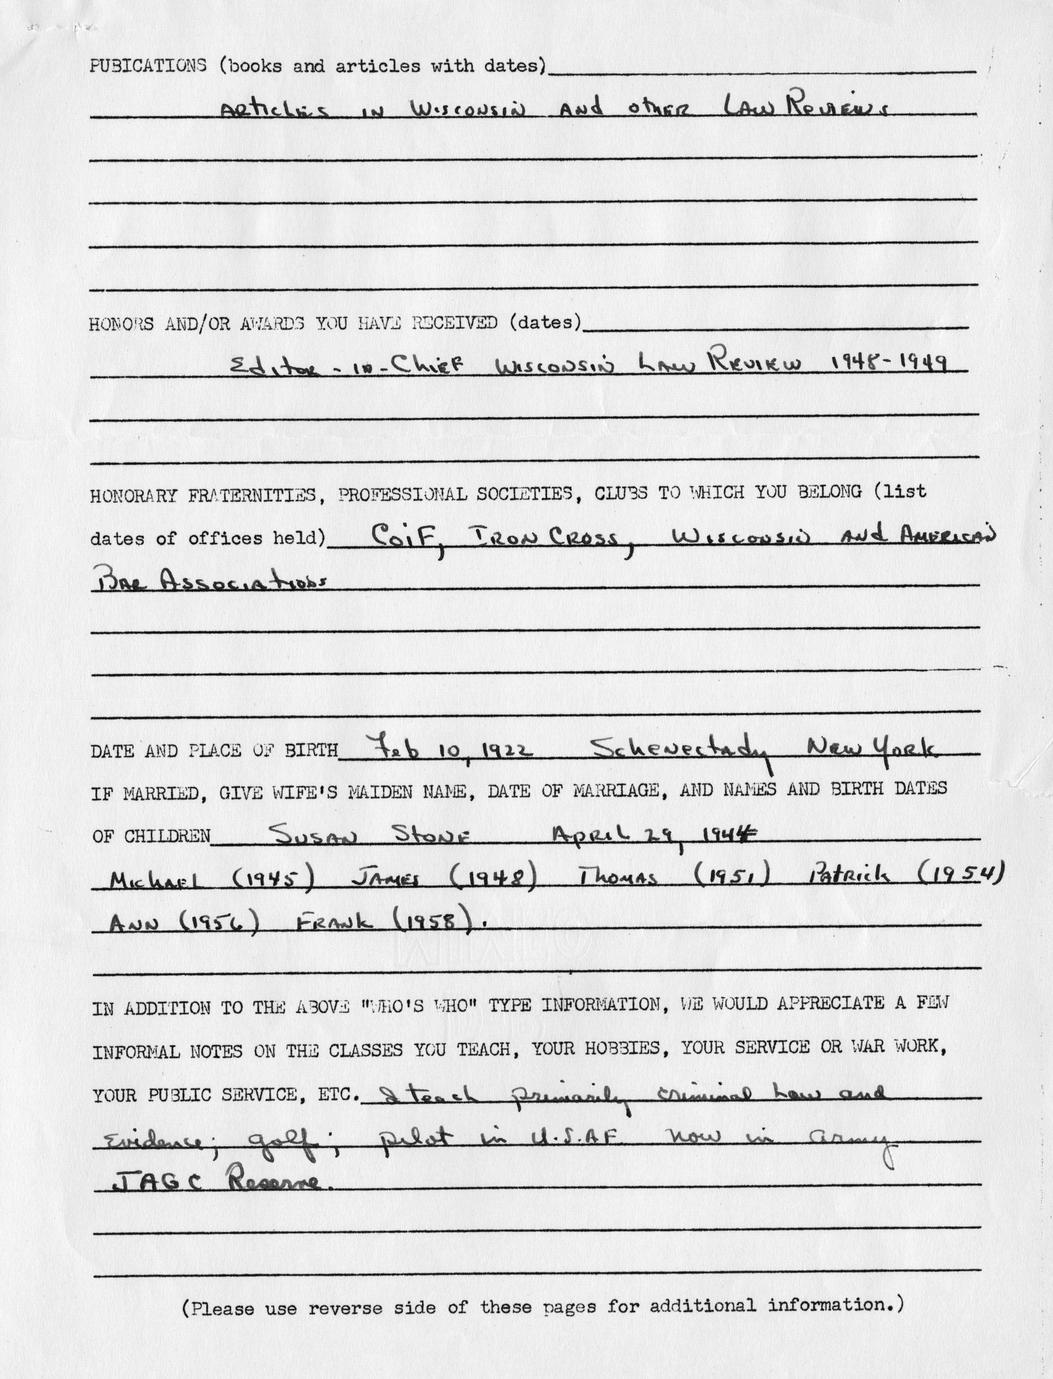 PUBICATIONS (books and articles with dates)
Articles in Wisconsin and other Law Reviews
HONORS AND/OR AWARDS YOU HAVE RECEIVED (dates)
Editor-in-Chief Wisconsin Law Review 1948-1949
HONORARY FRATERNITIES, PROFESSIONAL SOCIETIES, CLUBS TO WHICH YOU BELONG (list
dates of offices held) Coif, Iron Cross, Wisconsin and American
Bar Associations
DATE AND PLACE OF BIRTH Feb 10, 1922 Schenectady New York
IF MARRIED, GIVE WIFE'S MAIDEN NAME, DATE OF MARRIAGE, AND NAMES AND BIRTH DATES
OF CHILDREN Susan Stone April 29, 1944
Michael (1945) James (1948) Thomas (1951) Patrick (1954)
Ann (1956) Frank (1958).
IN ADDITION TO THE ABOVE "WHO'S WHO" TYPE INFORMATION, WE WOULD APPRECIATE A FEW
INFORMAL NOTES ON THE CLASSES YOU TEACH, YOUR HOBBIES, YOUR SERVICE OR WAR WORK,
YOUR PUBLIC SERVICE, ETC. I teach primarily criminal law and
Evidence; golf; pilot in U.S.AF now in army
JAGC Reserve.
(Please use reverse side of these pages for additional information.)